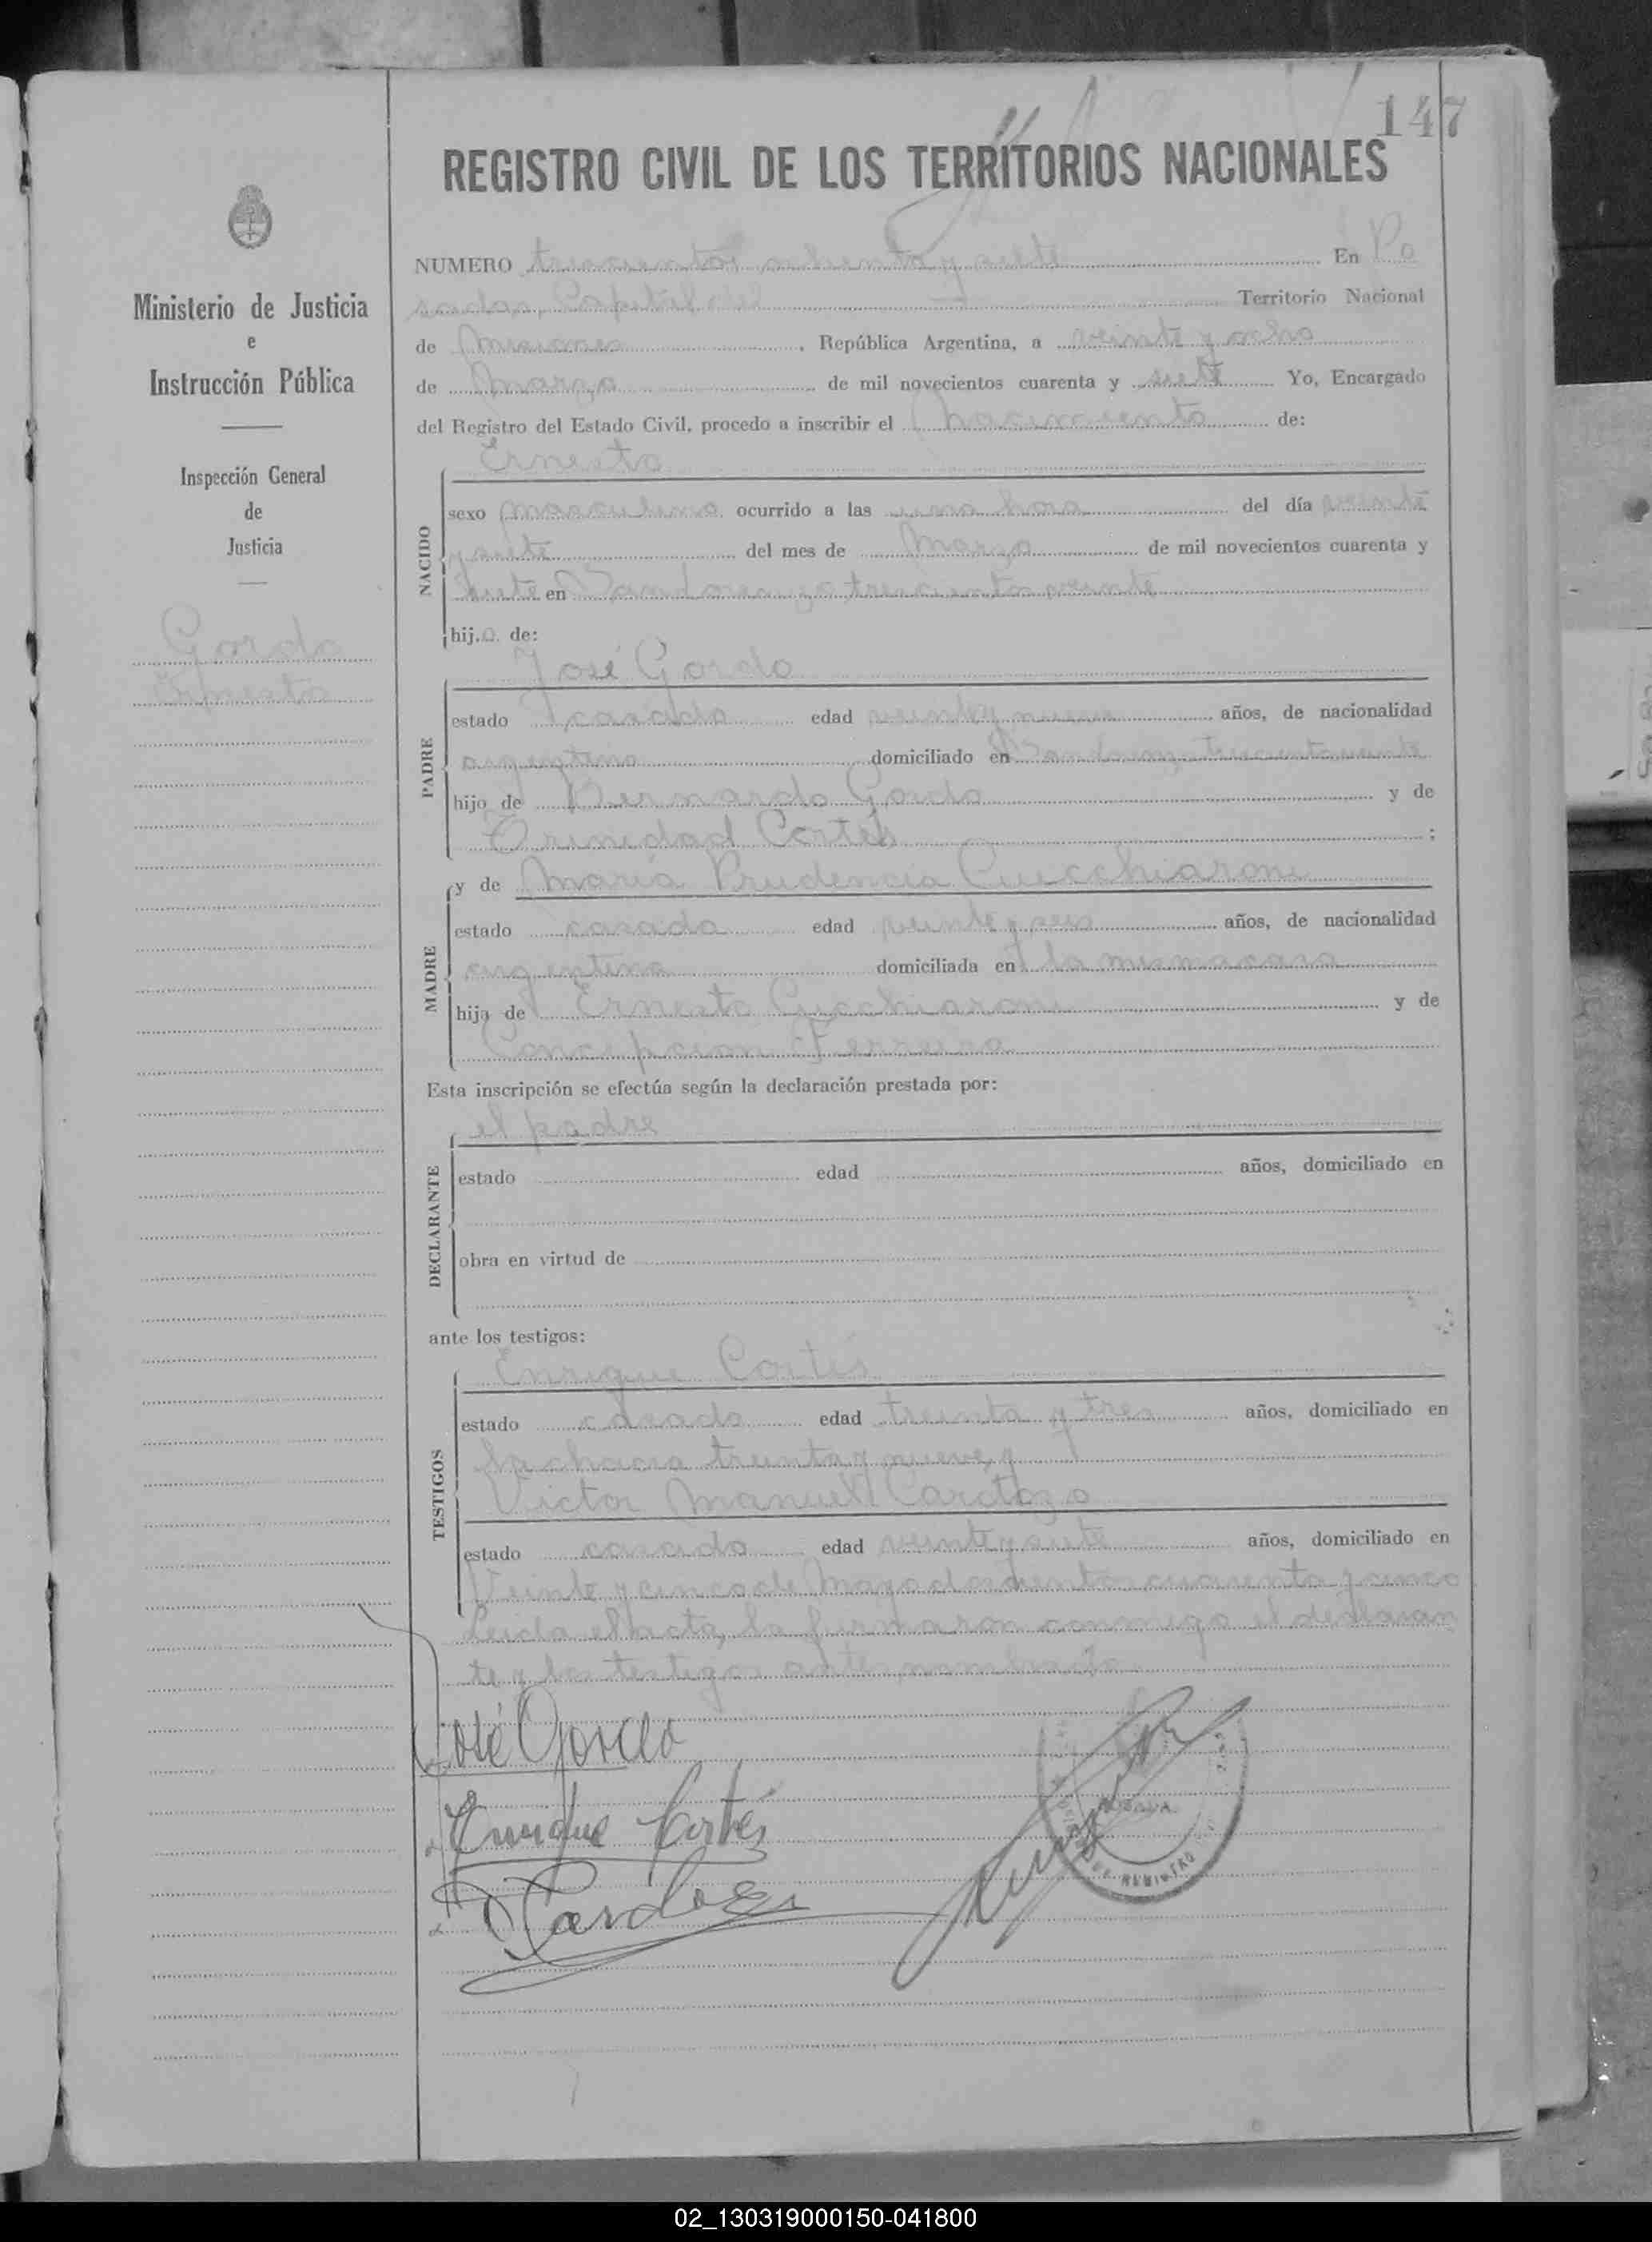 147
REGISTRO CIVIL DE LOS TERRITORIOS NACIONALES
Ministerio de Justicia
e
Instrucción Pública
Inspección General
de
Justicia
Gordo
Ernesto
NUMERO trescientos ochenta y siete En Po
sadas, Capital del Territorio Nacional
de Misiones, República Argentina, a veinte y ocho
de Marzo de mil novecientos cuarenta y siete Yo, Encargado
del Registro del Estado Civil, procedo a inscribir el nacimiento de:
Ernesto
NACIDO
sexo masculino ocurrido a las una hora del día veinte
y siete del mes de Marzo de mil novecientos cuarenta y
siete en San Lorenzo trescientos veinte
hijo de:
José Gordo
PADRE
estado casado edad veinte y nueve años, de nacionalidad
argentina domiciliado en San Lorenzo trescientos veinte
hijo de Bernardo Gordo y de
Trinidad Cortés ;
y de María Prudencia Cucchiaroni
MADRE
estado casada edad veinte y seis años, de nacionalidad
argentina domiciliada en la misma casa
hija de Ernesto Cucchiaroni y de
Concepcion Ferreira
Esta inscripción se efectúa según la declaración prestada por:
el padre
DECLARANTE
estado edad años, domiciliado en
obra en virtud de
ante los testigos:
Enrique Cortés
TESTIGOS
estado casado edad treinta y tres años, domiciliado en
la chacra treinta y nueve y
Victor Manuel Cardozo
estado casado edad veinte y siete años, domiciliado en
Veinte y cinco de Mayo doscientos cuarenta y cinco
Leida el acta, la firmaron conmigo el declaran
te y los testigos antes nombrados
José Gordo
Enrique Cortés
Cardozo
REGISTRO
02_130319000150-041800